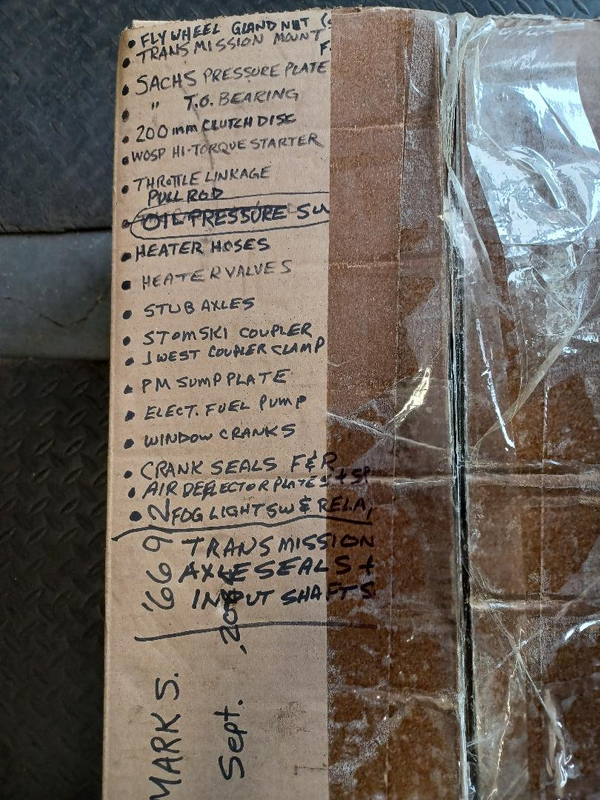 • FLYWHEEL GLAND NUT
• TRANSMISSION MOUNT
F
• SACHS PRESSURE PLATE
• " T.O. BEARING
• 200mm CLUTCH DISC
• WOSP HI-TORQUE STARTER
• THROTTLE LINKAGE
PULL ROD
• OIL PRESSURE SW
• HEATER HOSES
• HEATER VALVES
• STUB AXLES
• STOMSKI COUPLER
• JWEST COUPLER CLAMP
• PM SUMP PLATE
• ELECT. FUEL PUMP
• WINDOW CRANKS
• CRANK SEALS F&R
• AIR DEFLECTOR PLATES + SP
• FOG LIGHT SW & RELA
TRANSMISSION
AXLE SEALS +
INPUT SHAFTS
'66 912
MARK S.
Sept.